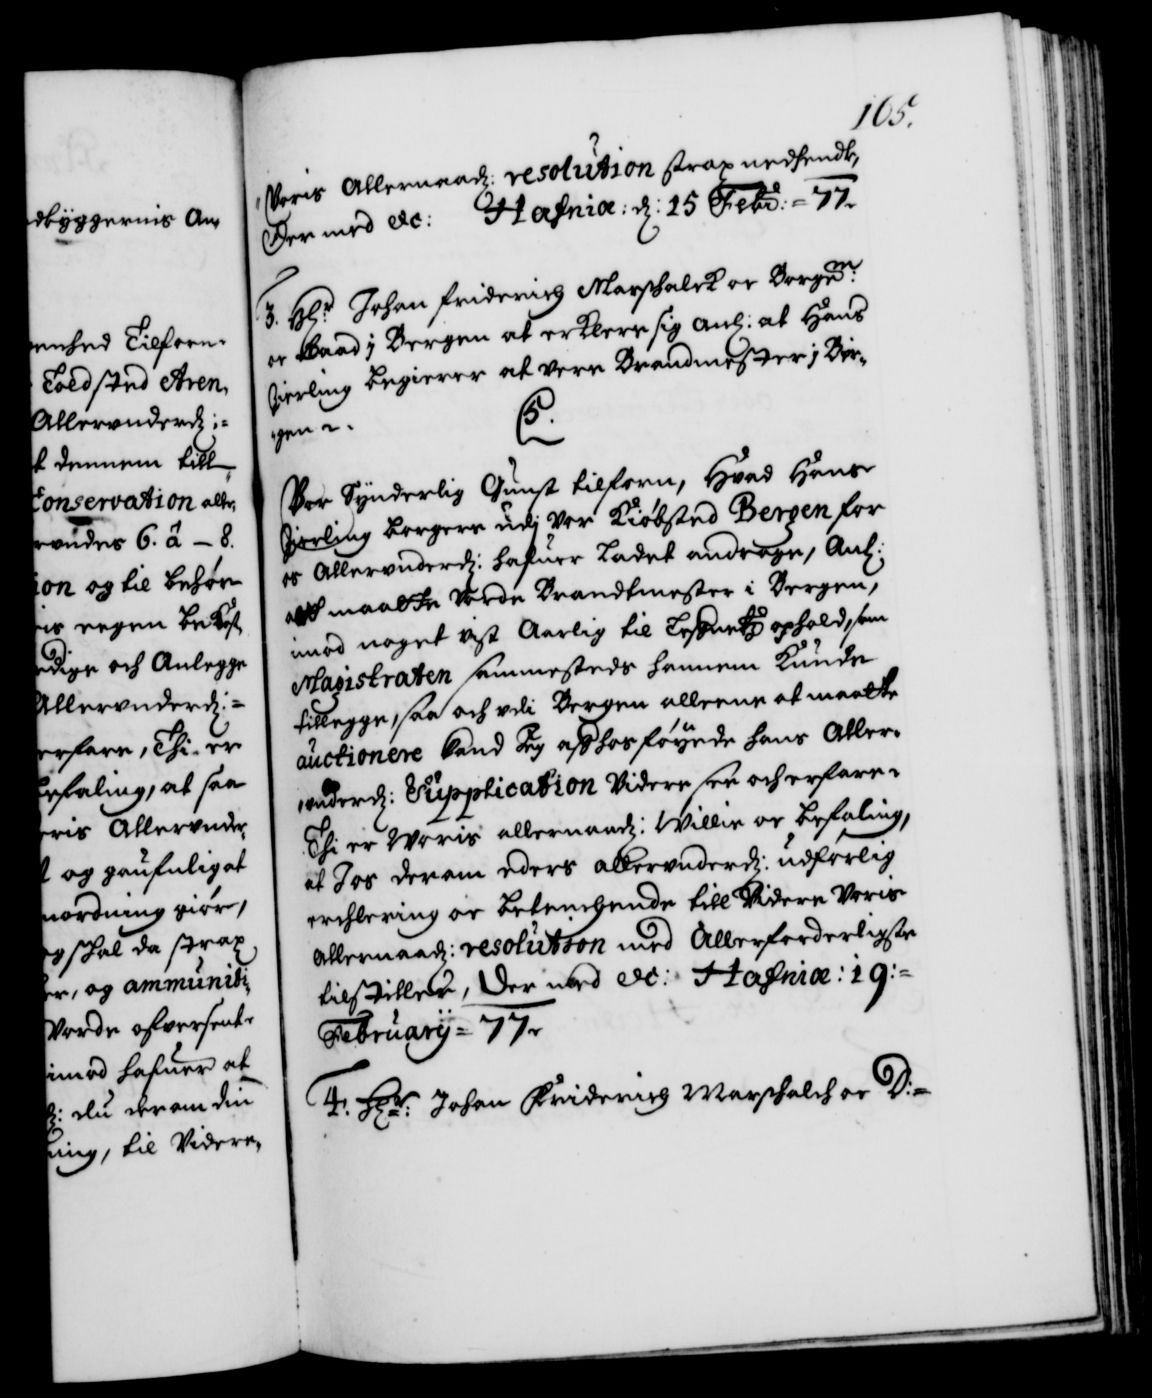 dbÿggernis An,
enhed Tilforn-
Toldsted Aren,
Allervnderd: =
t dennem till
Conservation aller,
rvndes 6. à - 8.
ion og til behör
is eegen bekost
edige och Anlegge
Allervnderd: =
erfare, Thi er
befaling, at saa
oris Allervnder,
t og gaufnligst
nordning giör,
og skal da strax
er, og ammuniti,
Vorde ofversent
imod hafuer at
: du derom din
ning, til Videre,
105.
Voris Allernaad: resolution strax nedsendt,
Der med etc: Hafniæ: d: 15 Febr: = 77.
3. Hr Johan Friderich Marschalck oc Borgem:
oc Raad i Bergen at erklere sig anl: at Hans
Zierling begierer at vere Brandmester i Ber,
gen.
S.
Vor Synderlig Gunst tilforn, Hvad Hans
Zierling borgere udi vor Kiöbsted Bergen for
os Allervnderd: hafuer ladet andrage, Anl:
at maatte vorde Brandtmester i Bergen,
imod noget vist Aarlig til Lefnets ophold, som
Magistraten sammesteds hannem kunde
tillegge, saa och vdi Bergen alleene at maatte
auctionere kand I af hosföyede hans Aller,
vnderd: Supplication Videre see och erfare.
Thi er Woris allernaad: Willie oc befaling,
at I os derom eders allervnderd: udförlig
erchlering oc betenchende till Videre Voris
allernaad: resolution med Allerforderligste
tilstiller, Der med etc: Hafniæ: 19: =
Februarij = 77.
4. Hr: Johan Friderich Marschalch oc B: =